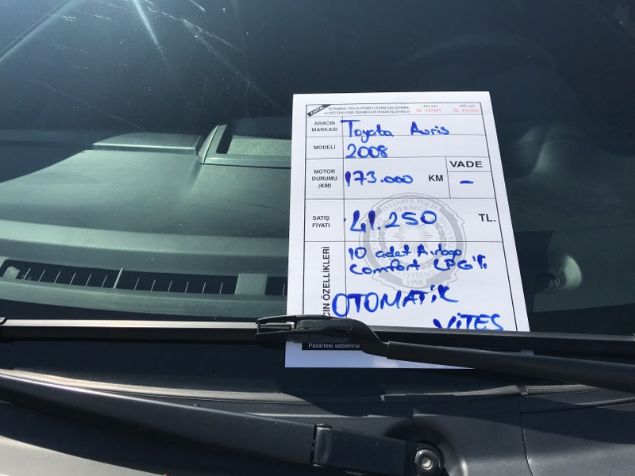 ARACIN MARKASI Toyota Auris
MODELİ 2008
MOTOR DURUMU (KM) 173.000 KM
VADE –
SATIŞ FİYATI 41.250 TL.
10 adet Airbag
Comfort LPG'li
OTOMATİK
VİTES
Pazartesi sabahına